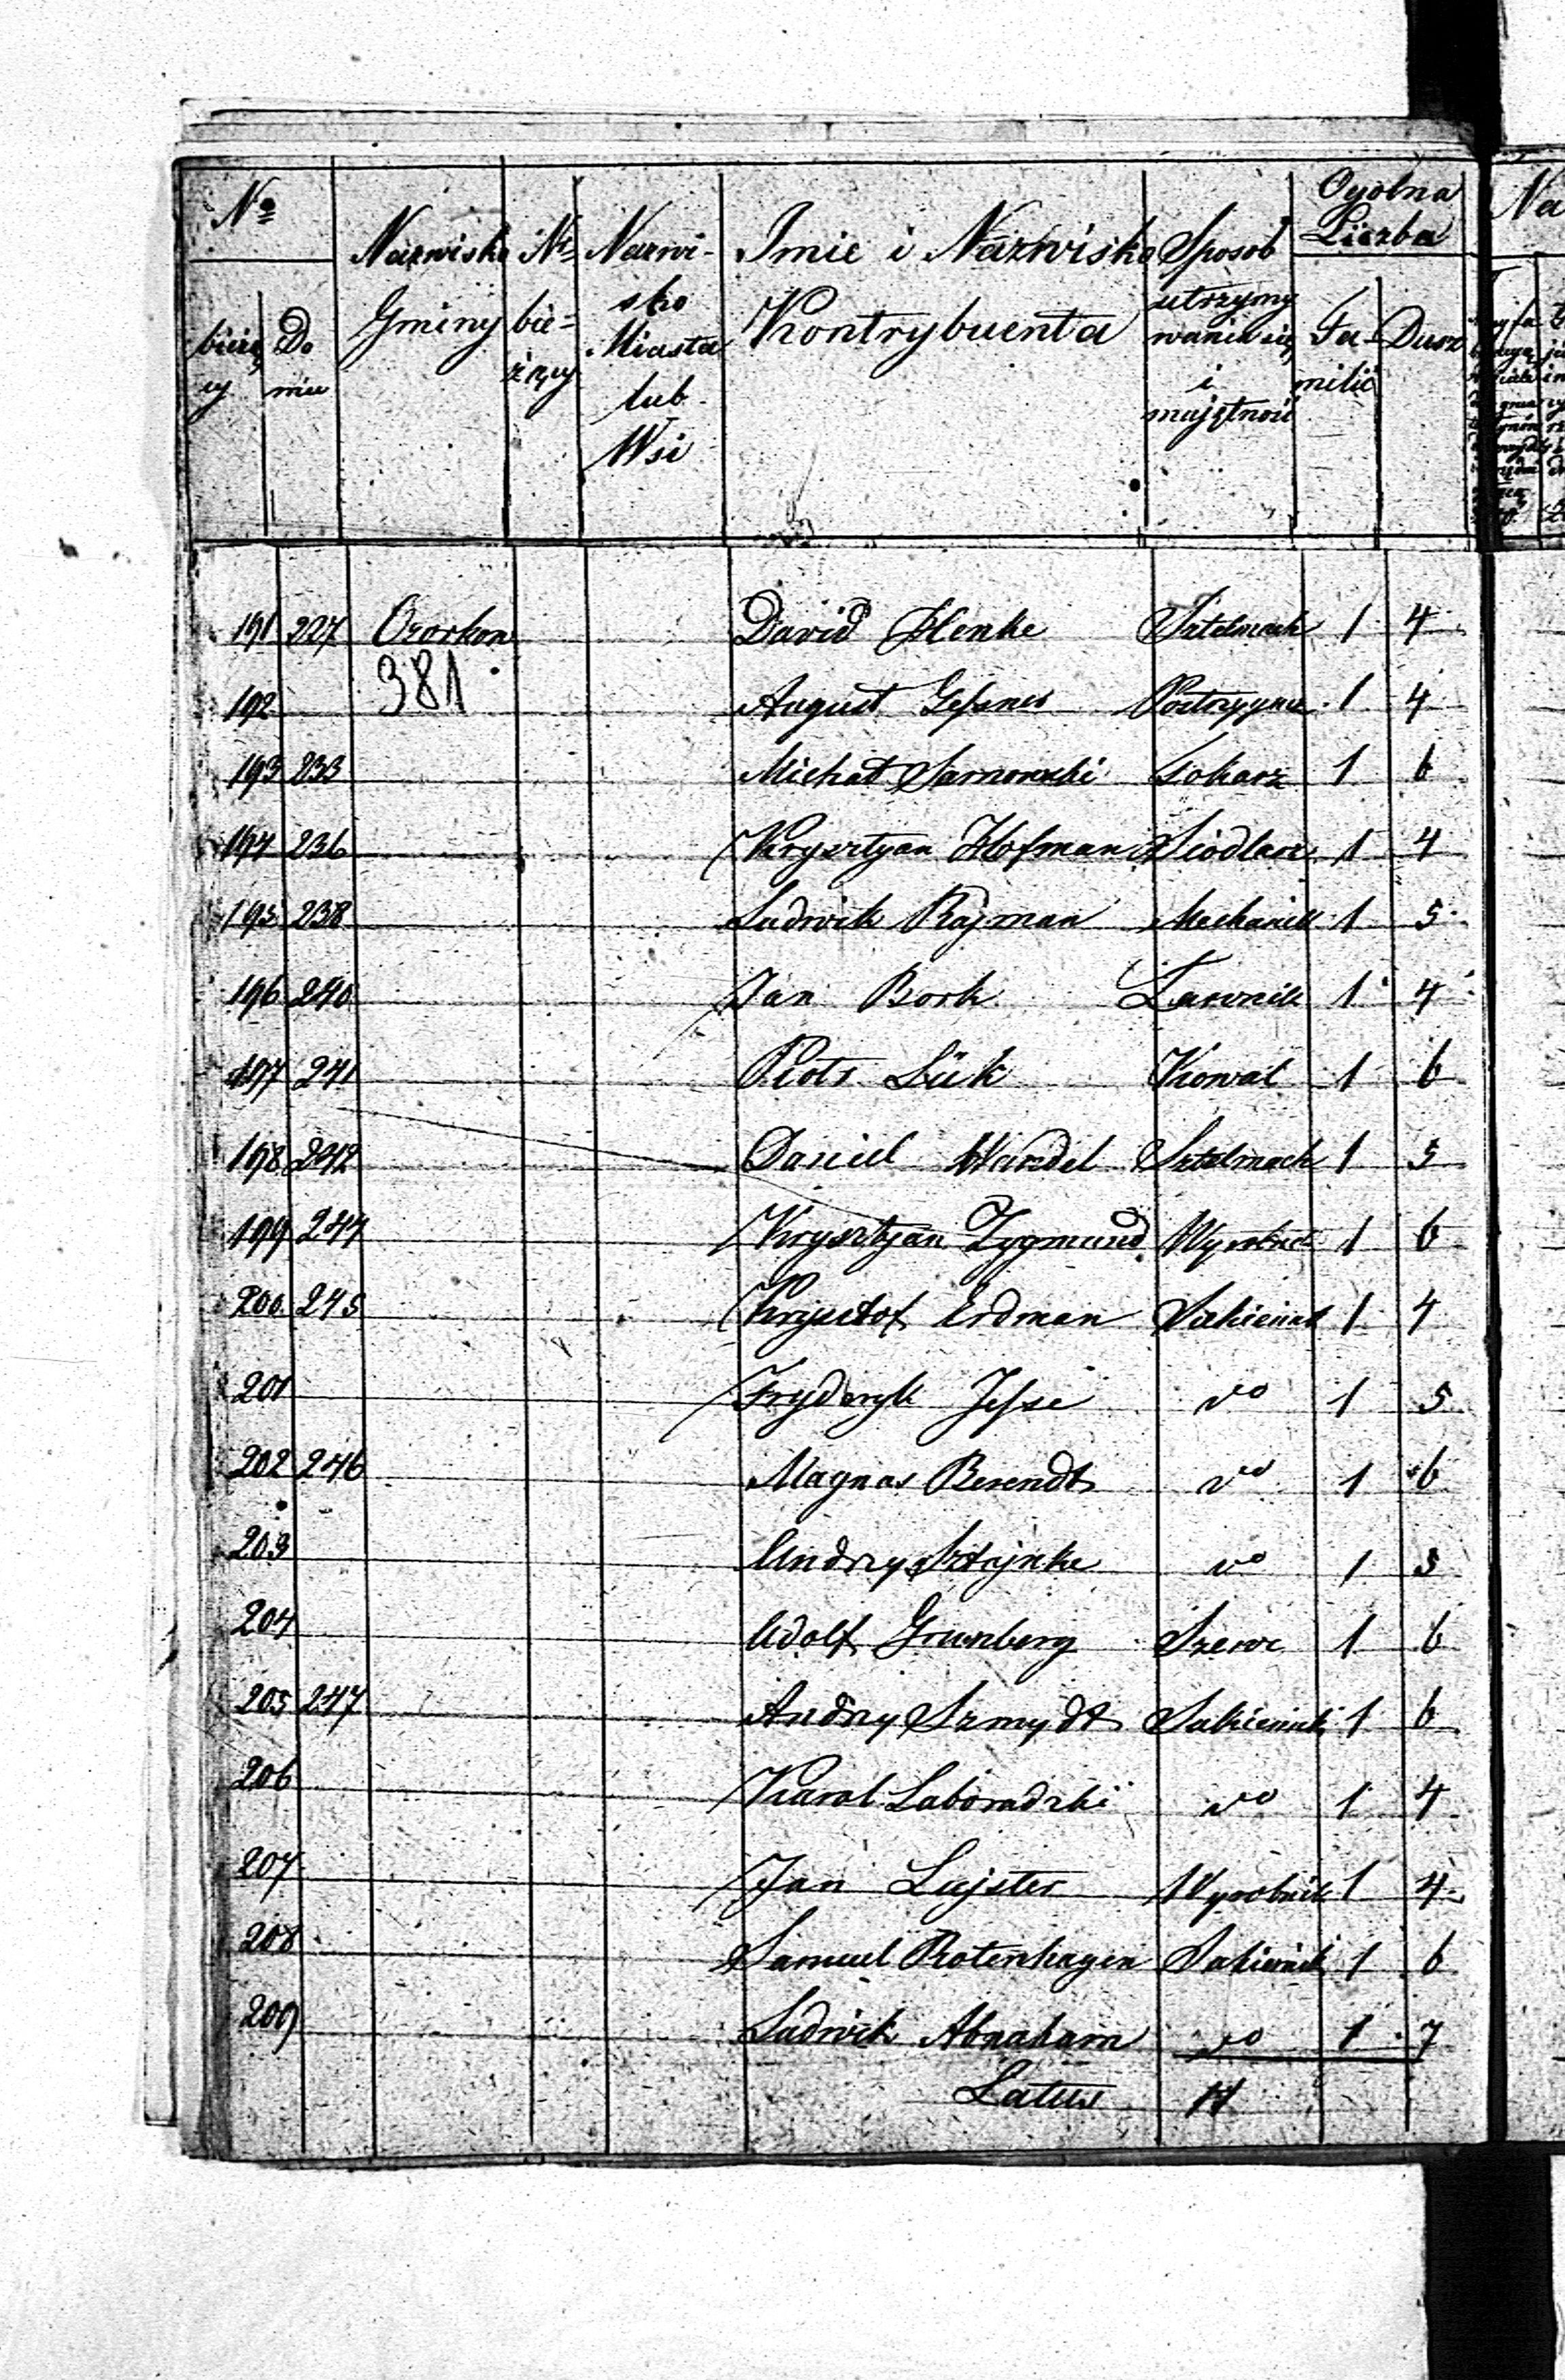 Nº Nazwisko Nº Nazwi- Imie i Nazwisko Sposob Ogolna Na
bieżący Domu Gminy bie=żący sko Miasta lub Wsi Kontrybuenta utrzymywania się i majętność Liczba
Familii Dusz
191 227 Ozorkow David Henke Sztelmach 1 4
381
192 August Gefsner Postrzygacz 1 4
193 233 Michał Sarnowski Tokarz 1 6
194 236 Krysztyan Hofman Siodlarz 1 4
195 238 Ludwik Rajman Mechanik 1 5
196 240 Jan Bork Ławnik 1 4
197 241 Piotr Lük Kowal 1 6
198 242 Daniel Wandel Sztelmach 1 5
199 244 Krysztyan Zygmund Wyrobnik 1 6
200 245 Krysztof Erdman Sukiennik 1 4
201 Frydryk Jefse vo 1 5
202 246 Magnas Berendt vo 1 6
203 Andrzy Sztajnke vo 1 5
204 Adolf Grunberg Szewc 1 6
205 247 Andrzy Szmydt Sukiennik 1 6
206 Karol Laboradzki vo 1 4
207 Jan Lujster Wyrobnik 1 4
208 Samuel Rotenhagen Sukiennik 1 6
209 Ludwik Abraham vo 1 7
Latus